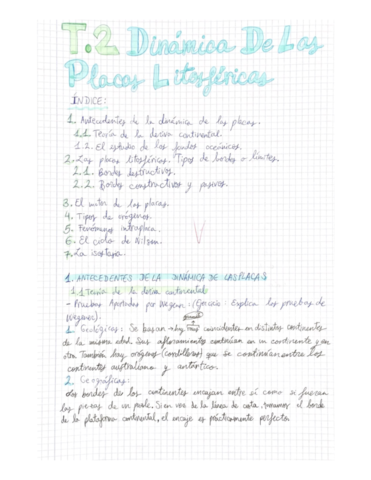 T.2 Dinámica De Las
Placas Litosféricas
ÍNDICE:
1. Antecedentes de la dinámica de las placas.
1.1. Teoría de la deriva continental.
1.2. El estudio de los fondos oceánicos.
2. Las placas litosféricas. Tipos de bordes o límites.
2.1. Bordes destructivos.
2.2. Bordes constructivos y pasivos.
3. El motor de las placas.
4. Tipos de orógenos.
5. Fenómenos intraplaca.
6. El ciclo de Wilson.
7. La isostasia.
1. ANTECEDENTES DE LA DINÁMICA DE LAS PLACAS
1.1 Teoría de la deriva continental
- Pruebas Aportadas por Wegener: (Ejercicio: Explica las pruebas de
Wegener).
1. Geológicas: Se basan hay muy coincidentes en distintos continentes
de la misma edad. Sus afloramientos continúan en un continente y en
otro. También hay orógenos (cordilleras) que se continúan entre los
continentes australiano y antártico.
2. Geográficas:
Los bordes de los continentes encajan entre sí como si fueran
las piezas de un puzle. Si en vez de la línea de costa, usamos el borde
de la plataforma continental, el encaje es prácticamente perfecto.